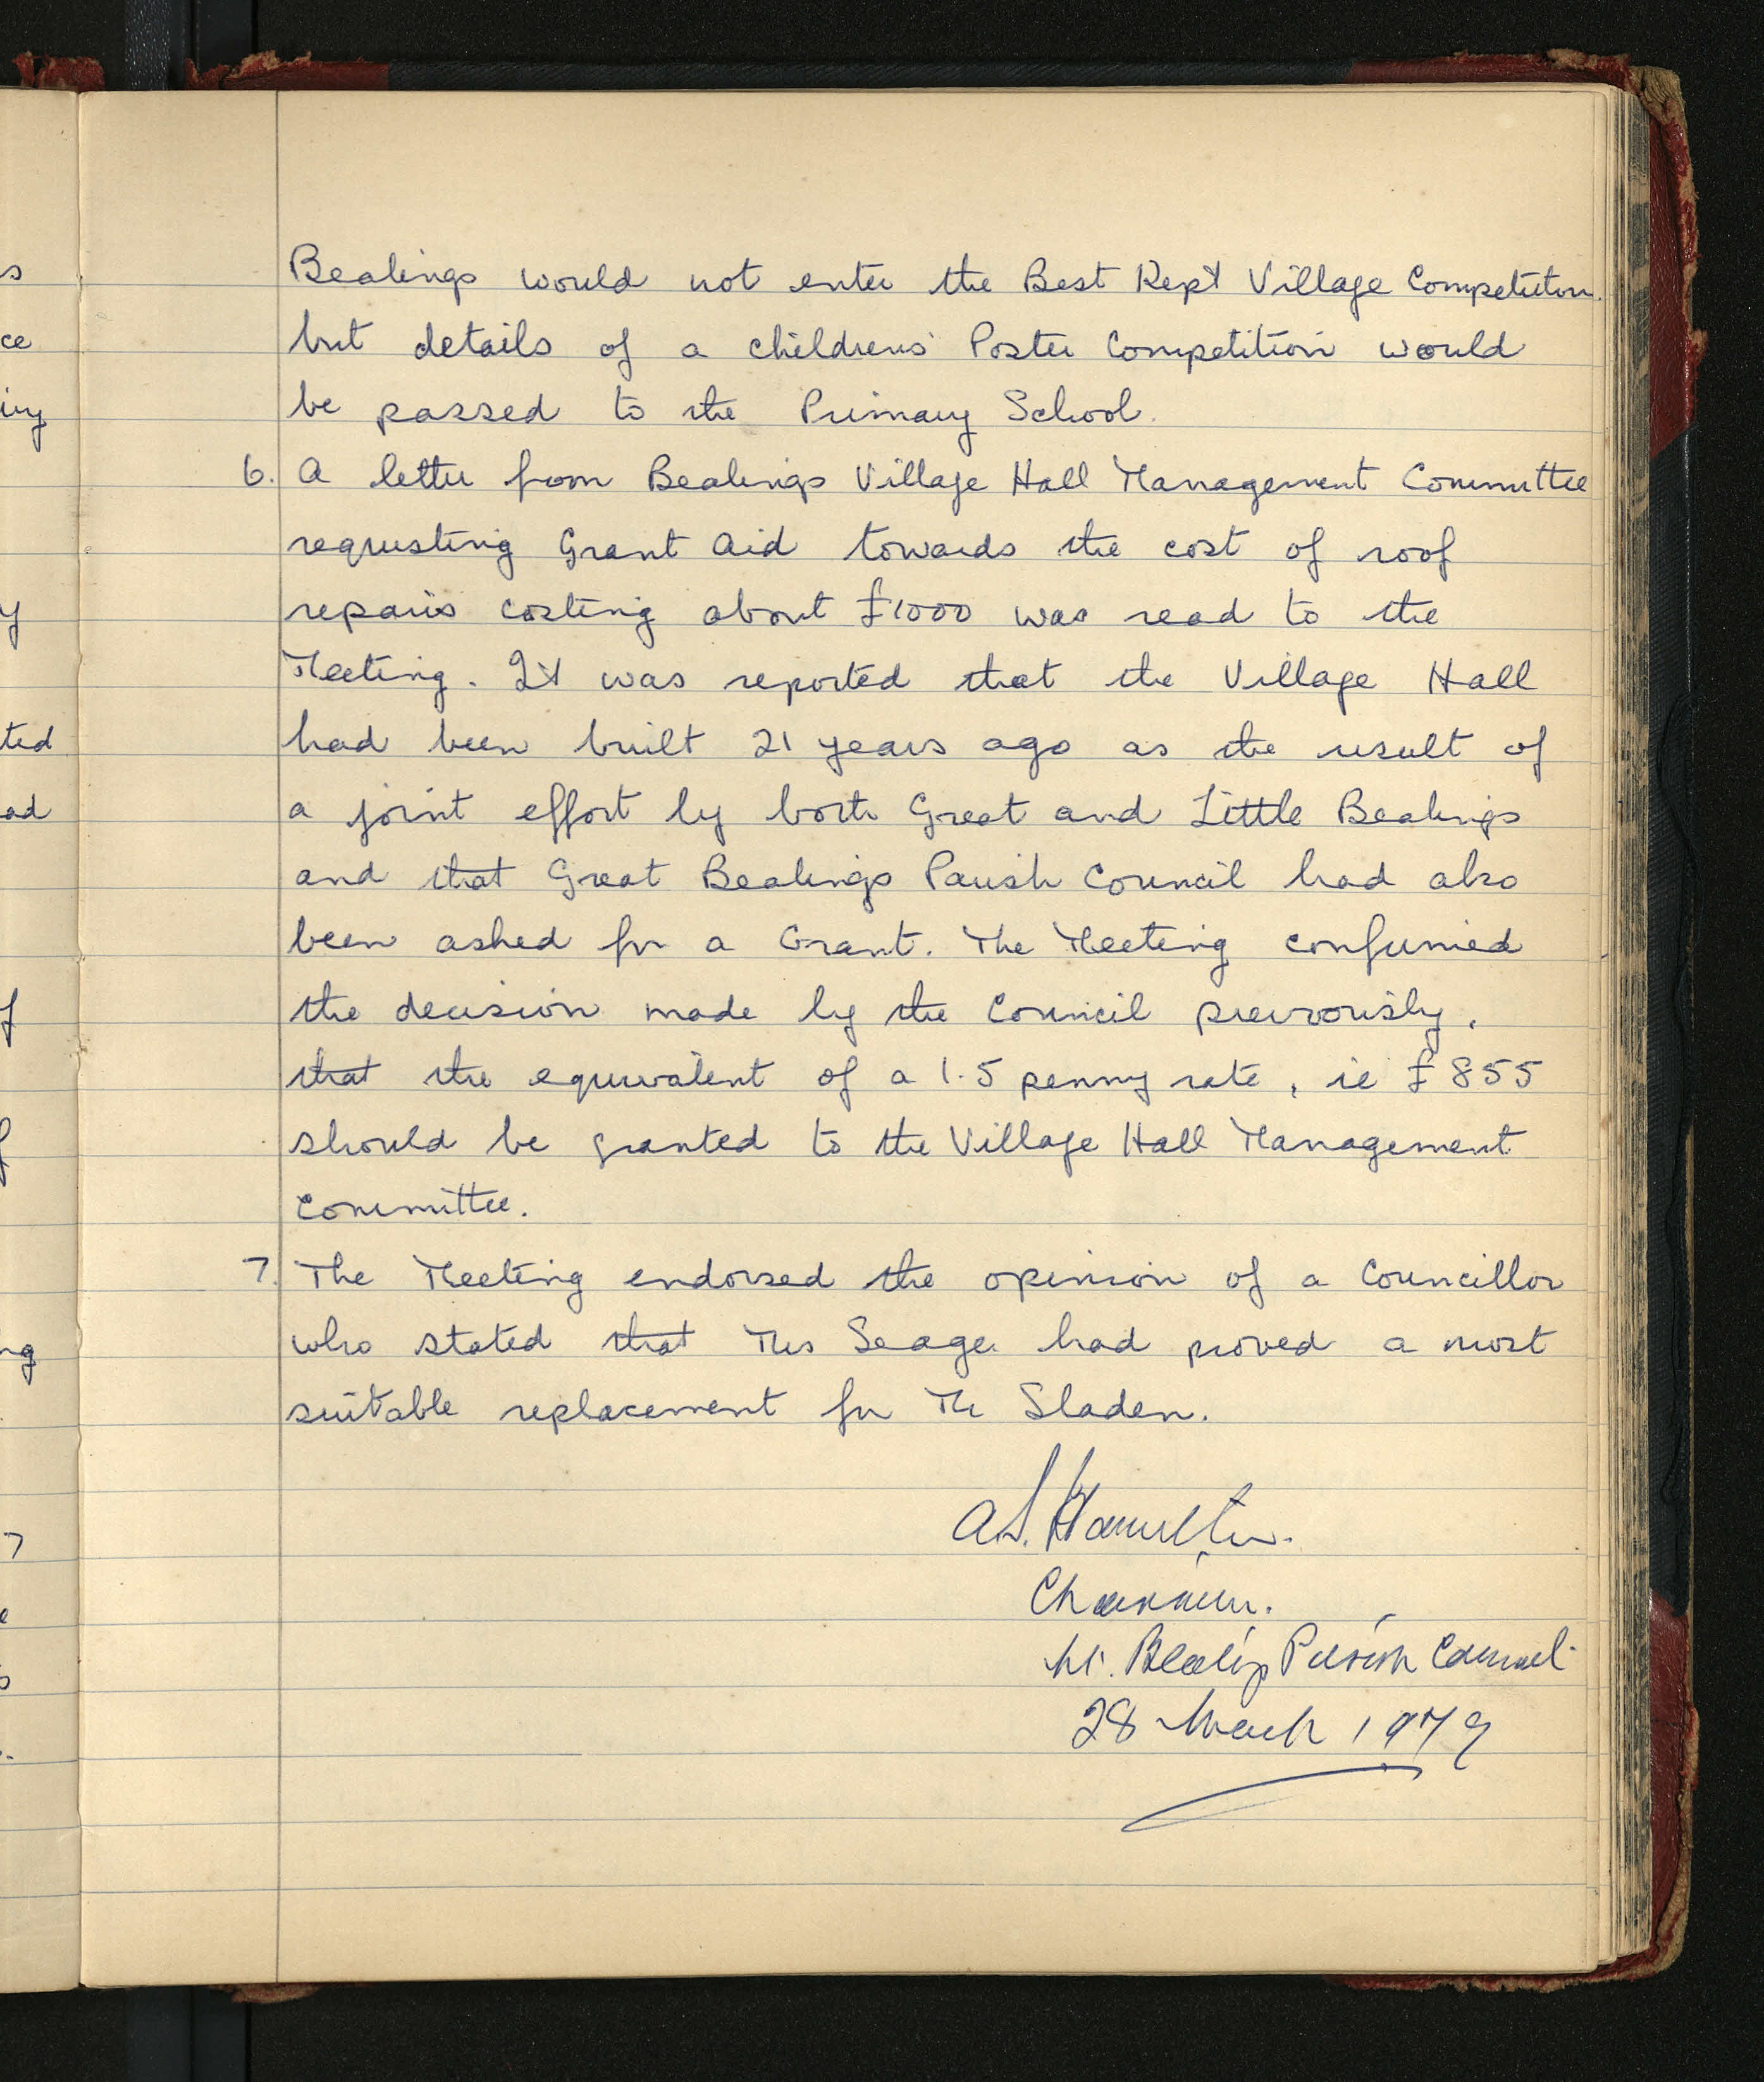 Bealings would not enter the Best Kept Village Competition
but details of a childrens' Poster Competition would
be passed to the Primary School.
6. A letter from Bealings Village Hall Management Committee
requesting Grant Aid towards the cost of roof
repairs costing about £1000 was read to the
Meeting. It was reported that the Village Hall
had been built 21 years ago as the result of
a joint effort by both Great and Little Bealings
and that Great Bealings Parish Council had also
been asked for a Grant. The Meeting confirmed
the decision made by the Council previously,
that the equivalent of a 1.5 penny rate, ie £855
should be granted to the Village Hall Management
Committee.
7. The Meeting endorsed the opinion of a Councillor
who stated that Mrs Seager had proved a most
suitable replacement for Mr Sladen.
A.S. Hamilton.
Chairman.
Lt. Bealings Parish Council
28 March 1979
s
ce
ing
y
ted
ad
f
f
ng
7
e
s